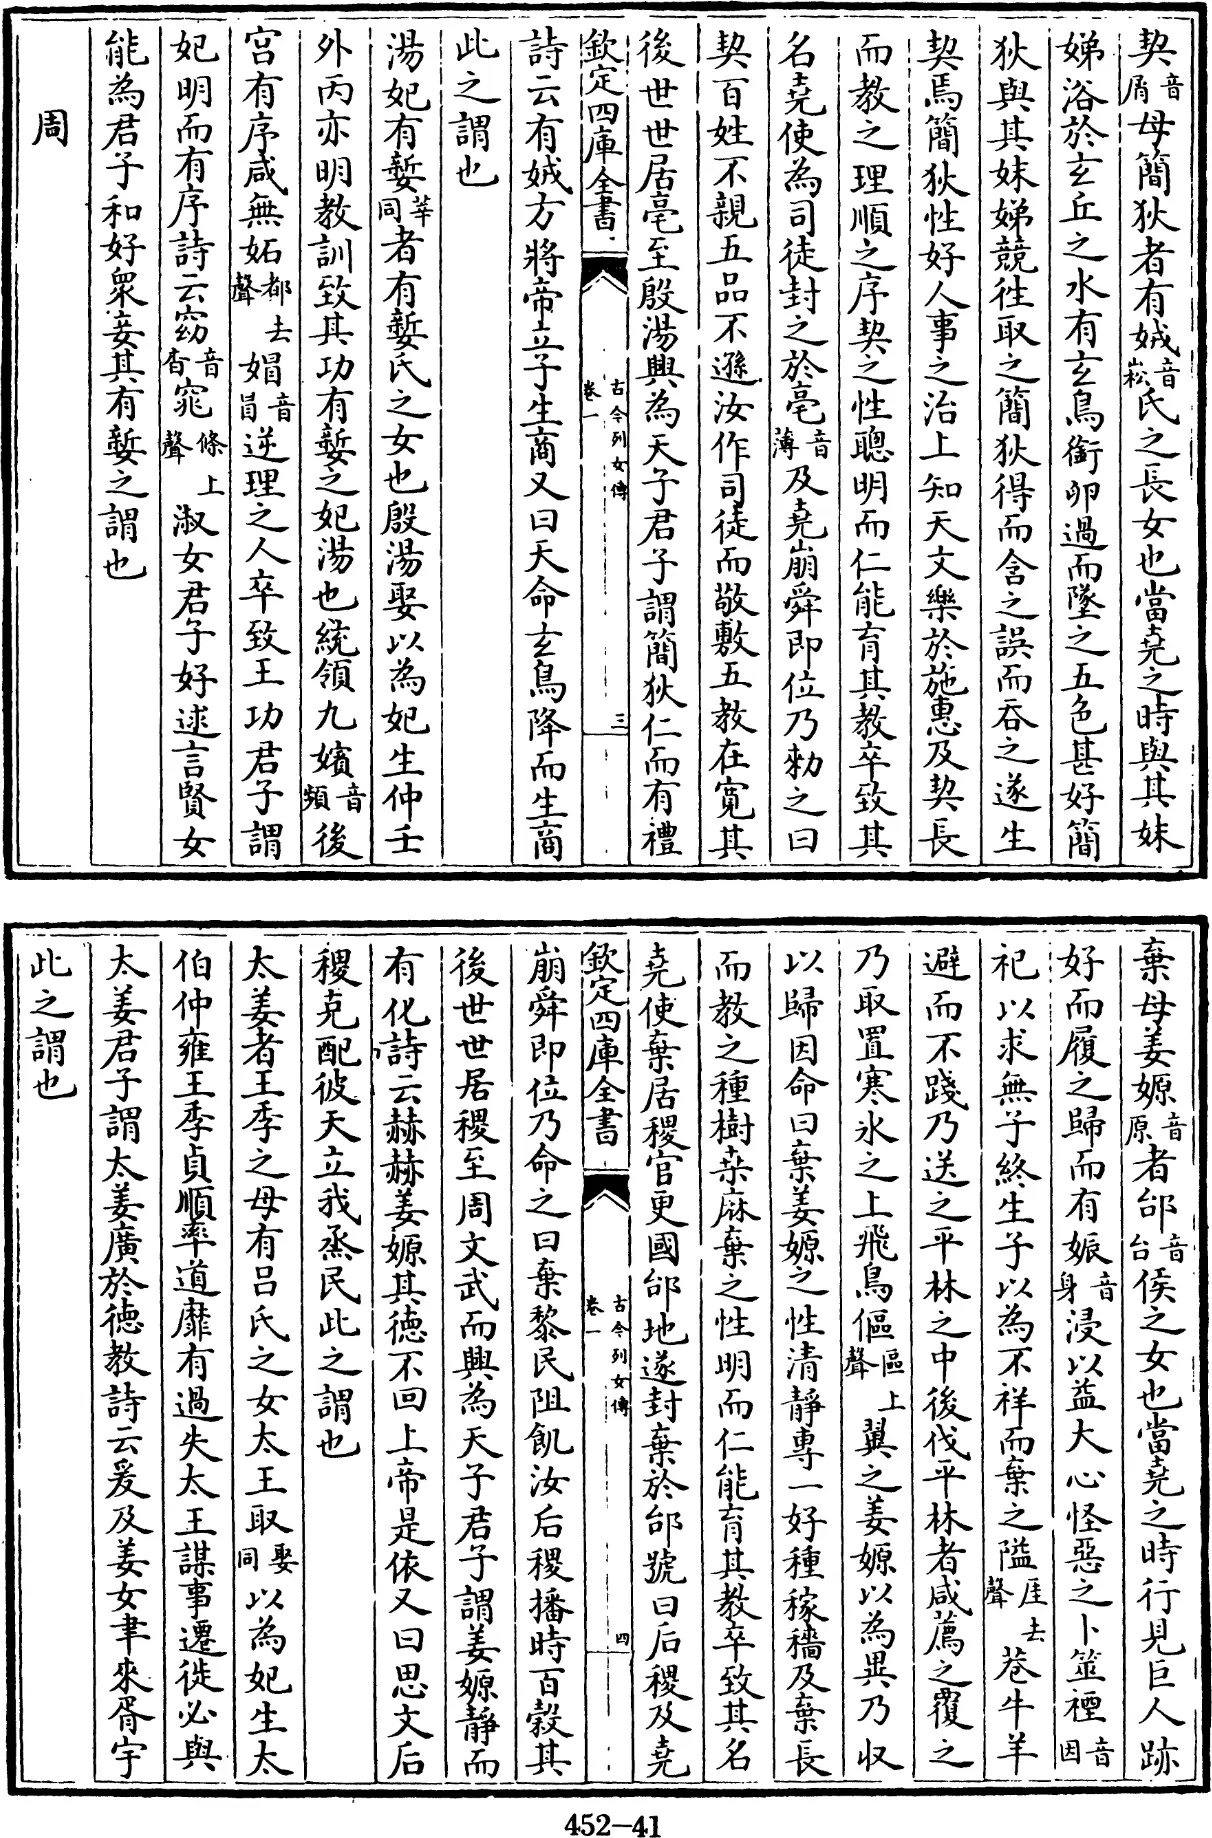 契音屑母簡狄者有娀音崧氏之長女也當堯之時與其妹
娣浴於玄丘之水有玄鳥銜卵過而墜之五色甚好簡
狄與其妹娣競往取之簡狄得而含之誤而吞之遂生
契焉簡狄性好人事之治上知天文樂於施惠及契長
而教之理順之序契之性聰明而仁能育其教卒致其
名堯使為司徒封之於亳音薄及堯崩舜即位乃勅之曰
契百姓不親五品不遜汝作司徒而敬敷五教在寛其
後世世居亳至殷湯興為天子君子謂簡狄仁而有禮
欽定四庫全書 古今列女傳 卷一 三
詩云有娀方將帝立子生商又曰天命玄鳥降而生商
此之謂也
湯妃有㜪莘同者有㜪氏之女也殷湯娶以為妃生仲壬
外丙亦明教訓致其功有㜪之妃湯也統領九嬪音頻後
宮有序咸無妬都去聲媢音冒逆理之人卒致王功君子謂
妃明而有序詩云窈音杳窕條上聲淑女君子好逑言賢女
能為君子和好衆妾其有㜪之謂也
周
棄母姜嫄音原者邰音台侯之女也當堯之時行見巨人跡
好而履之歸而有娠音身浸以益大心怪惡之卜筮禋音因
祀以求無子終生子以為不祥而棄之隘厓去聲巷牛羊
避而不踐乃送之平林之中後伐平林者咸薦之覆之
乃取置寒氷之上飛鳥傴區上聲翼之姜嫄以為異乃収
以歸因命曰棄姜嫄之性清靜專一好種稼穡及棄長
而教之種樹桒麻棄之性明而仁能育其教卒致其名
堯使棄居稷官更國邰地遂封棄於邰號曰后稷及堯
欽定四庫全書 古今列女傳 卷一 四
崩舜即位乃命之曰棄黎民阻飢汝后稷播時百穀其
後世世居稷至周文武而興為天子君子謂姜嫄靜而
有化詩云赫赫姜嫄其德不回上帝是依又曰思文后
稷克配彼天立我烝民此之謂也
太姜者王季之母有呂氏之女太王取娶同以為妃生太
伯仲雍王季貞順率道靡有過失太王謀事遷徙必與
太姜君子謂太姜廣於德教詩云爰及姜女聿來胥宇
此之謂也
452-41